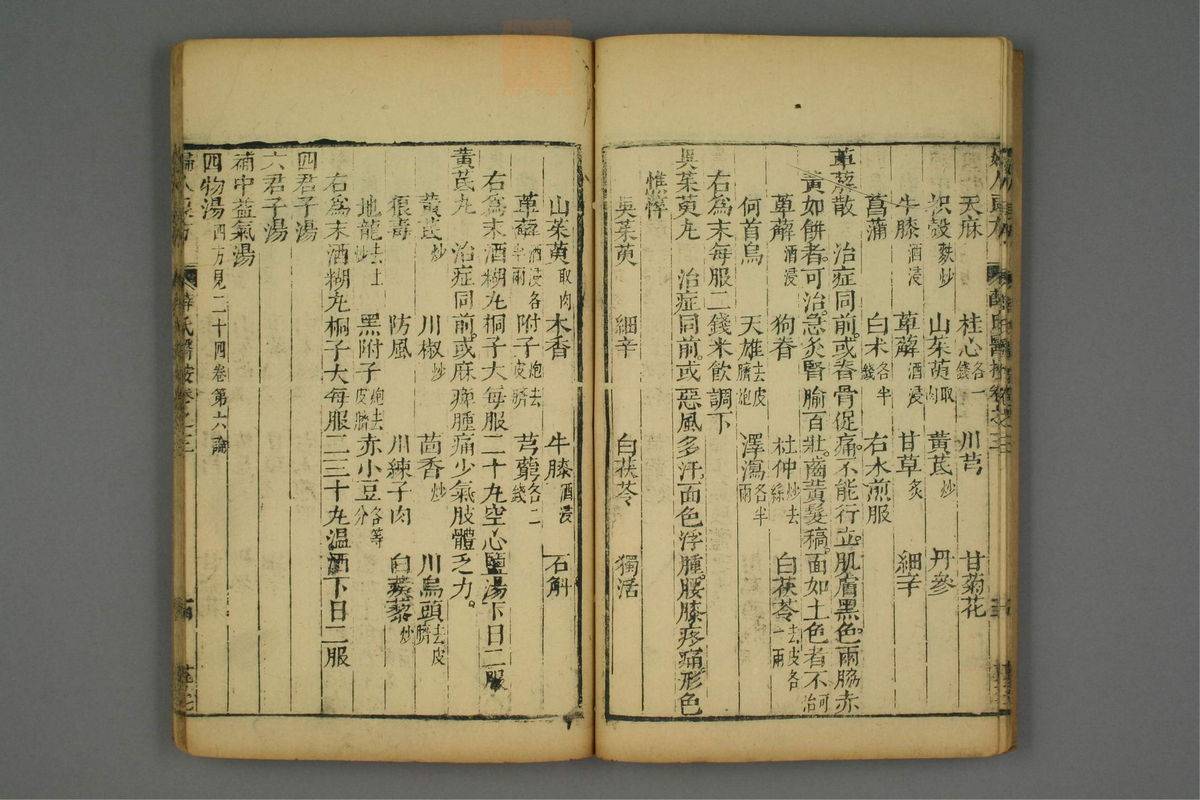 天麻 桂心各一錢 川芎 甘菊花
枳殼麩炒 山茱萸取肉 黃芪炒 丹參
牛膝酒浸 萆薢酒浸 甘草炙 細辛
菖蒲 白术各半錢 右水煎服
萆薢散 治症同前。或脊骨促痛。不能行立。肌膚黑色。兩脇赤
黃如餅者。可治。急灸腎腧百壯。齒黃髮稿。面如土色者不可治
萆薢酒浸 狗脊 杜仲炒去絲 白茯苓去皮各一兩
何首烏 天雄去皮臍炮 澤瀉各半兩
右為末每服二錢米飲調下
吳茱萸丸 治症同前或惡風多汗。面色浮腫。腰膝疼痛。形色
惟悴
吳茱萸 細辛 白茯苓 獨活
山茱萸取肉 木香 牛膝酒浸 石斛
萆薢酒浸各半兩 附子炮去皮臍 芎藭各二錢
右為末酒糊丸桐子大每服二十丸空心鹽湯下日二服
黃芪丸 治症同前。或麻痺腫痛少氣肢體乏力。
黃芪炒 川椒炒 茴香炒 川烏頭去皮臍
狼毒 防風 川練子肉 白蒺藜炒
地龍去土炒 黑附子炮去皮臍 赤小豆各等分
右為末酒糊丸桐子大每服二三十丸溫酒下日二服
四君子湯
六君子湯
補中益氣湯
四物湯四方見二十四卷第六論